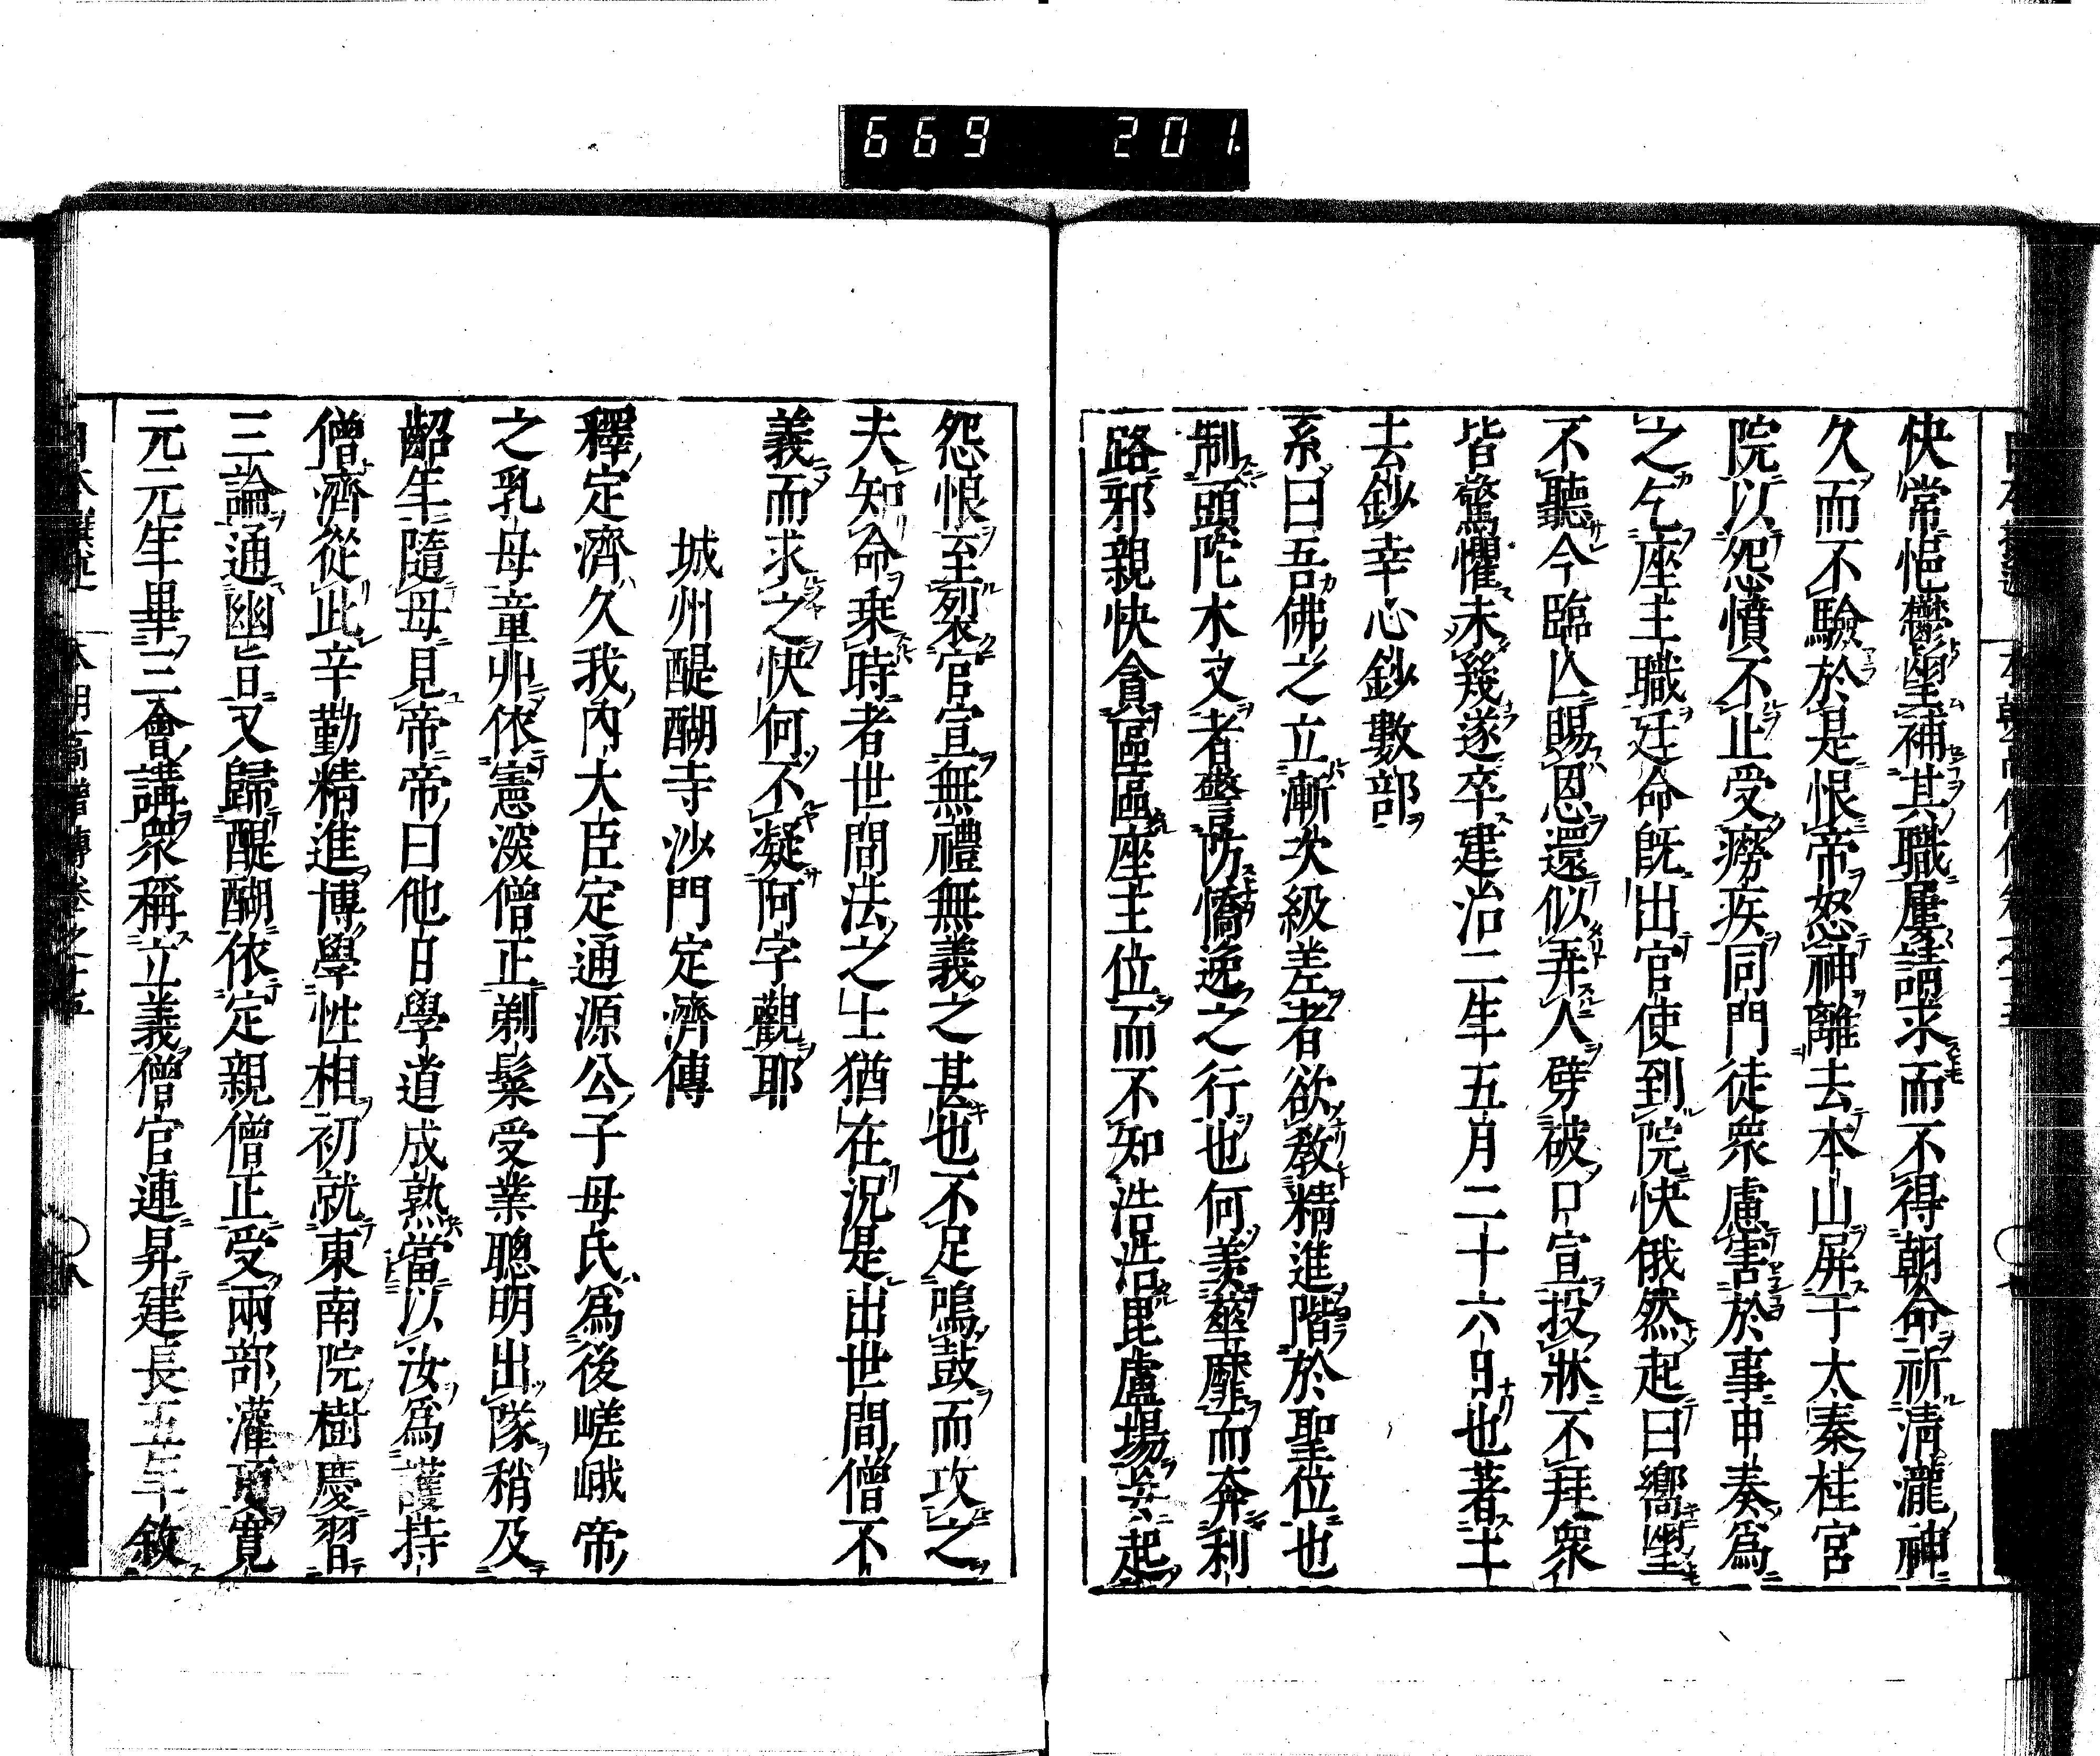 669 201.
快常悒鬱望補其職屢請求而不得朝命祈清瀧神
久而不驗於是恨帝怒神離去本山屏于大秦桂宮
院以怨憤不止受癆疾同門徒衆慮害於事申奏爲
之乞座主職廷命既出官使到院快俄然起曰嚮望
不聽今臨亾賜恩還似弄人劈破口宣投牀不拜衆
皆驚懼未幾遂卒建治二年五月二十六日也著土
去鈔幸心鈔數部
系曰吾佛之立漸次級差者欲教精進階於聖位也
制頭陀木叉者警防憍逸之行也何羨華靡而奔利
路邪親快貪區區座主位而不知浩浩毘盧場妄起
怨恨至裂官宣無禮無義之甚也不足鳴鼓而攻之
夫知命乗時者世間法之士猶在況是出世間僧不
義而求之快何不凝阿字觀耶
城州醍醐寺沙門定濟傳
釋定濟久我內大臣定通源公子母氏爲後嵯峨帝
之乳母童丱依憲深僧正剃髮受業聰明出隊稍及
齠年隨母見帝帝曰他日學道成熟當以汝爲護持
僧濟從此辛勤精進博學性相初就東南院樹慶習
三論通幽旨又歸醍醐依定親僧正受兩部灌頂寬
元元年畢三會講衆稱立義僧官連昇建長五年敘